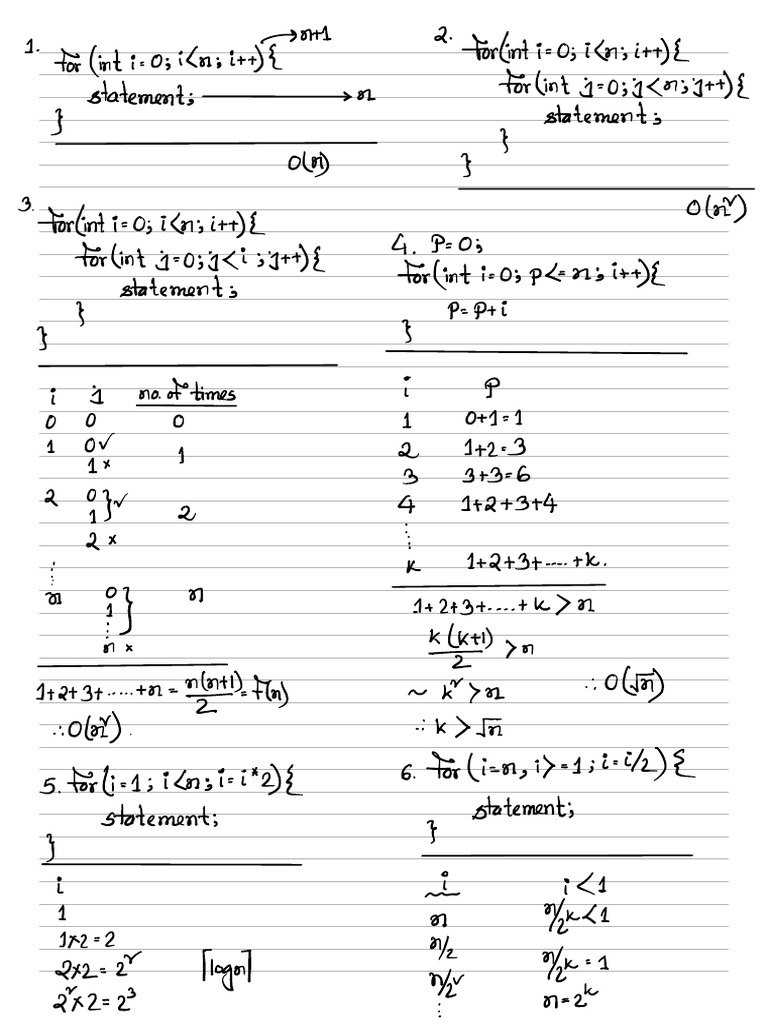 1.
for (int i=0; i<n; i++){ → n+1
statement; → n
}
O(n)
2.
for(int i=0; i<n; i++){
for(int j=0; j<n; j++){
statement;
}
}
O(n²)
3.
for(int i=0; i<n; i++){
for(int j=0; j<i; j++){
statement;
}
}
i j no. of times
0 0 0
1 0✓ 1
1 ×
2 0 } ✓
1 2
2 ×
⋮
n 0 } n
1
⋮
n ×
1+2+3+.....+n = n(n+1)/2 = f(n)
∴ O(n²).
4. P=0;
for(int i=0; p<=n; i++){
P=P+i
}
i P
1 0+1=1
2 1+2=3
3 3+3=6
4 1+2+3+4
⋮
k 1+2+3+....+k.
1+2+3+....+k > n
k(k+1)/2 > n
~ k² > n ∴ O(√n)
∴ k > √n
5. for(i=1; i<n; i=i*2){
statement;
}
i
1
1×2=2
2×2=2²
2²×2=2³
⌈logn⌉
6. for(i=n, i>=1; i=i/2){
statement;
}
i i<1
n n/2k<1
n/2
n/2k=1
n/2²
n=2^k
⋮